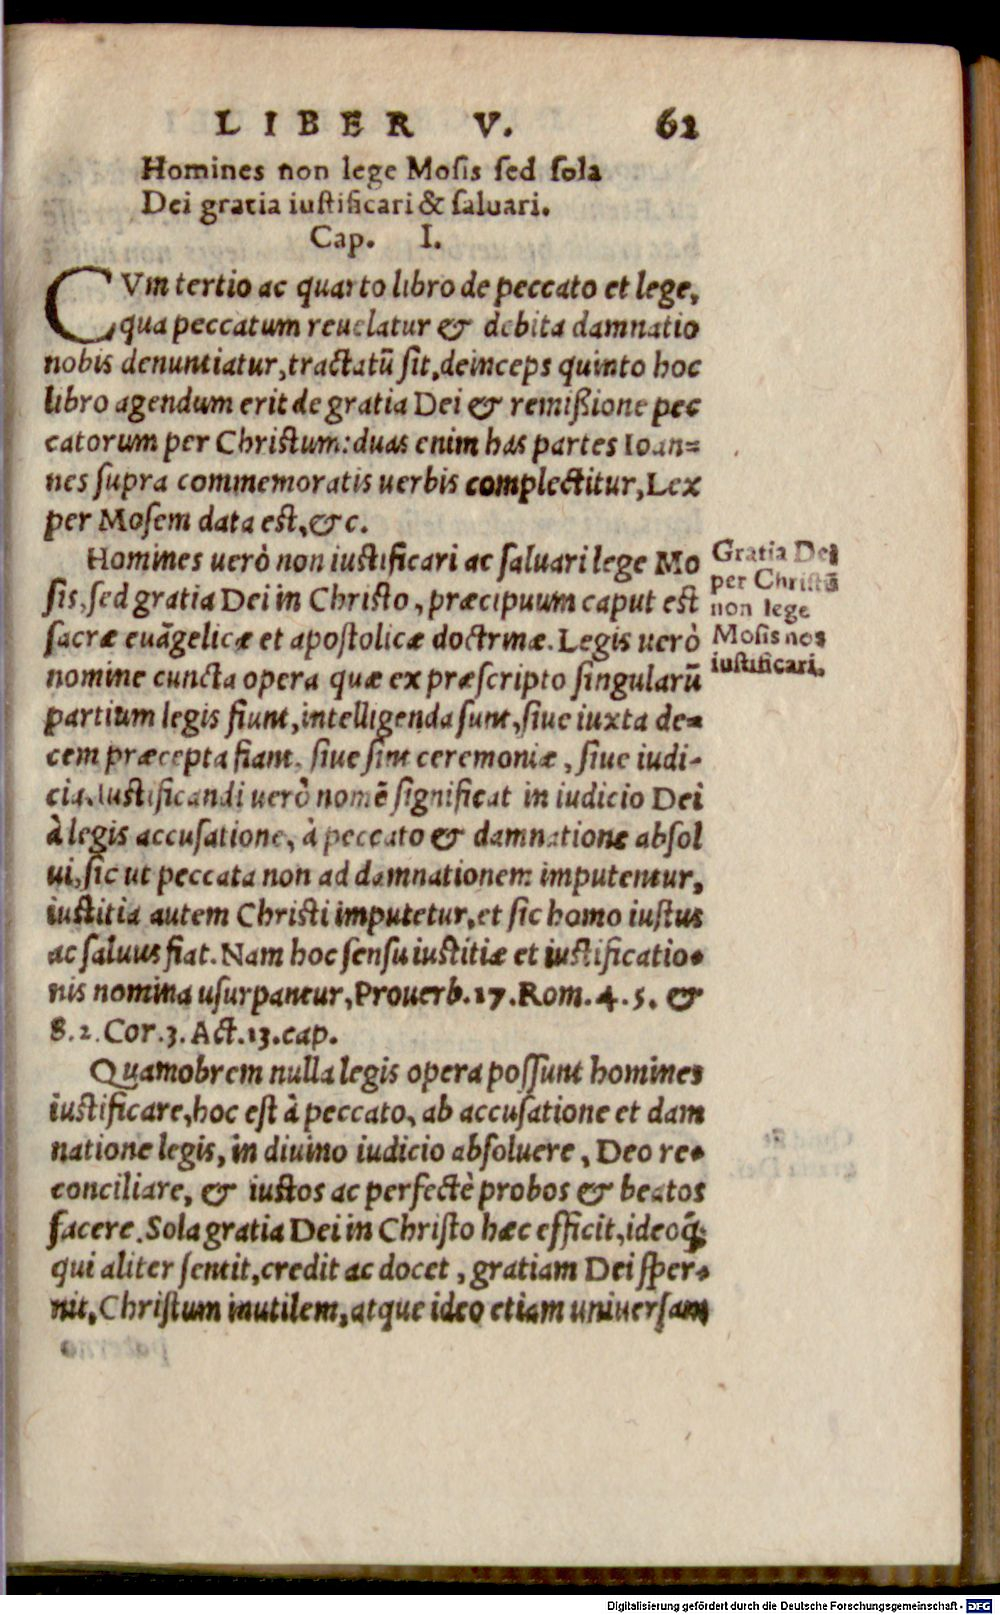 LIBER V. 62
Homines non lege Mosis sed sola
Dei gratia iustificari & saluari.
Cap. I.
CVm tertio ac quarto libro de peccato et lege,
qua peccatum reuelatur & debita damnatio
nobis denuntiatur, tractatũ sit, deinceps quinto hoc
libro agendum erit de gratia Dei & remißione pec
catorum per Christum: duas enim has partes Ioan=
nes supra commemoratis uerbis complectitur, Lex
per Mosem data est, &c.
Homines uerò non iustificari ac saluari lege Mo
sis, sed gratia Dei in Christo, præcipuum caput est
sacræ euãgelicæ et apostolicæ doctrinæ. Legis uerò
nomine cuncta opera quæ ex præscripto singularũ
partium legis fiunt, intelligenda sunt, siue iuxta de=
cem præcepta fiant, siue sint ceremoniæ, siue iudi-
cia. Iustificandi uerò nomẽ significat in iudicio Dei
à legis accusatione, à peccato & damnatione absol
ui, sic ut peccata non ad damnationem imputentur,
iustitia autem Christi imputetur, et sic homo iustus
ac saluus fiat. Nam hoc sensu iustitiæ et iustificatio=
nis nomina usurpantur, Prouerb. 17. Rom. 4. 5. &
8. 2. Cor. 3. Act. 13. cap.
Gratia Dei
per Christũ
non lege
Mosis nos
iustificari.
Quamobrem nulla legis opera possunt homines
iustificare, hoc est à peccato, ab accusatione et dam
natione legis, in diuino iudicio absoluere, Deo re=
conciliare, & iustos ac perfectè probos & beatos
facere. Sola gratia Dei in Christo hæc efficit, ideoq́;
qui aliter sentit, credit ac docet, gratiam Dei sper=
nit, Christum inutilem, atque ideo etiam uniuersam
Digitalisierung gefördert durch die Deutsche Forschungsgemeinschaft - DFG